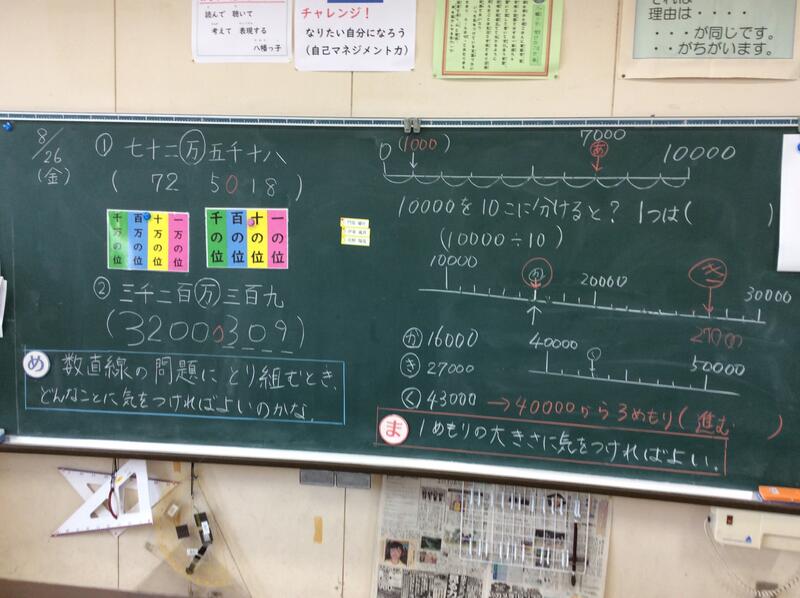 読んで 聴いて
考えて 表現する
八幡っ子
チャレンジ！
なりたい自分になろう
(自己マネジメント力)
理由は・・・・
・・・が同じです。
・・がちがいます。
8/26
(金)
① 七十二万五千十八
( 72 5018 )
千万の位 百万の位 十万の位 一万の位
千の位 百の位 十の位 一の位
② 三千二百万三百九
(32000309)
め 数直線の問題にとり組むとき、
どんなことに気をつければよいのかな。
0 (1000) 7000 あ 10000
10000を10こに分けると? 1つは( )
(10000÷10)
10000 か 20000 き 30000
27000
か 16000
き 27000
く 43000 →40000から3めもり(進む )
40000 く 50000
ま 1めもりの大きさに気をつければよい。